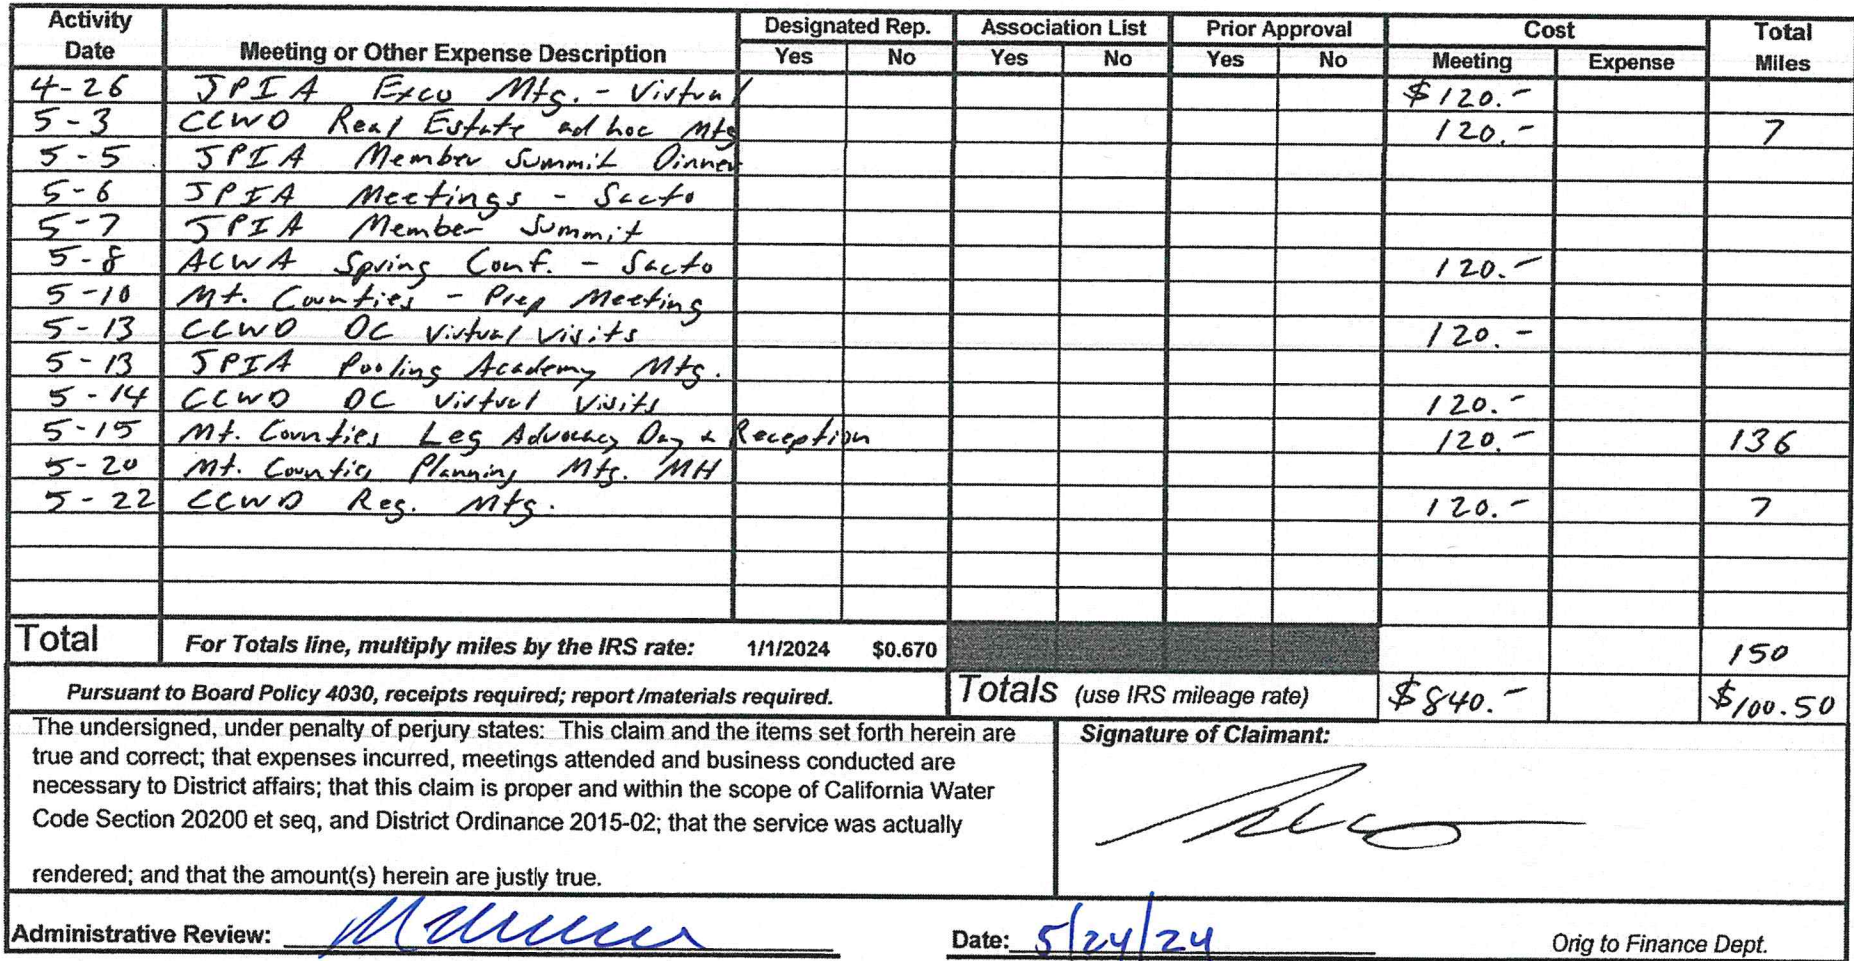 Activity Date Meeting or Other Expense Description Designated Rep. Association List Prior Approval Cost Total Miles
Yes No Yes No Yes No Meeting Expense
4-26 JPIA Exco Mtg. - Virtual $120.-
5-3 CCWD Real Estate ad hoc Mtg 120.- 7
5-5 JPIA Member Summit Dinner
5-6 JPIA Meetings - Sacto
5-7 JPIA Member Summit
5-8 ACWA Spring Conf. - Sacto 120.-
5-10 Mt. Counties - Prep Meeting
5-13 CCWD DC Virtual Visits 120.-
5-13 JPIA Pooling Academy Mtg.
5-14 CCWD DC Virtual Visits 120.-
5-15 Mt. Counties Leg Advocacy Day & Reception 120.- 136
5-20 Mt. Counties Planning Mtg. MH
5-22 CCWD Reg. Mtg. 120.- 7
Total For Totals line, multiply miles by the IRS rate: 1/1/2024 $0.670 150
Pursuant to Board Policy 4030, receipts required; report/materials required. Totals (use IRS mileage rate) $840.- $100.50
The undersigned, under penalty of perjury states: This claim and the items set forth herein are
true and correct; that expenses incurred, meetings attended and business conducted are
necessary to District affairs; that this claim is proper and within the scope of California Water
Code Section 20200 et seq, and District Ordinance 2015-02; that the service was actually
rendered; and that the amount(s) herein are justly true.
Signature of Claimant:
Administrative Review: Date: 5/24/24 Orig to Finance Dept.